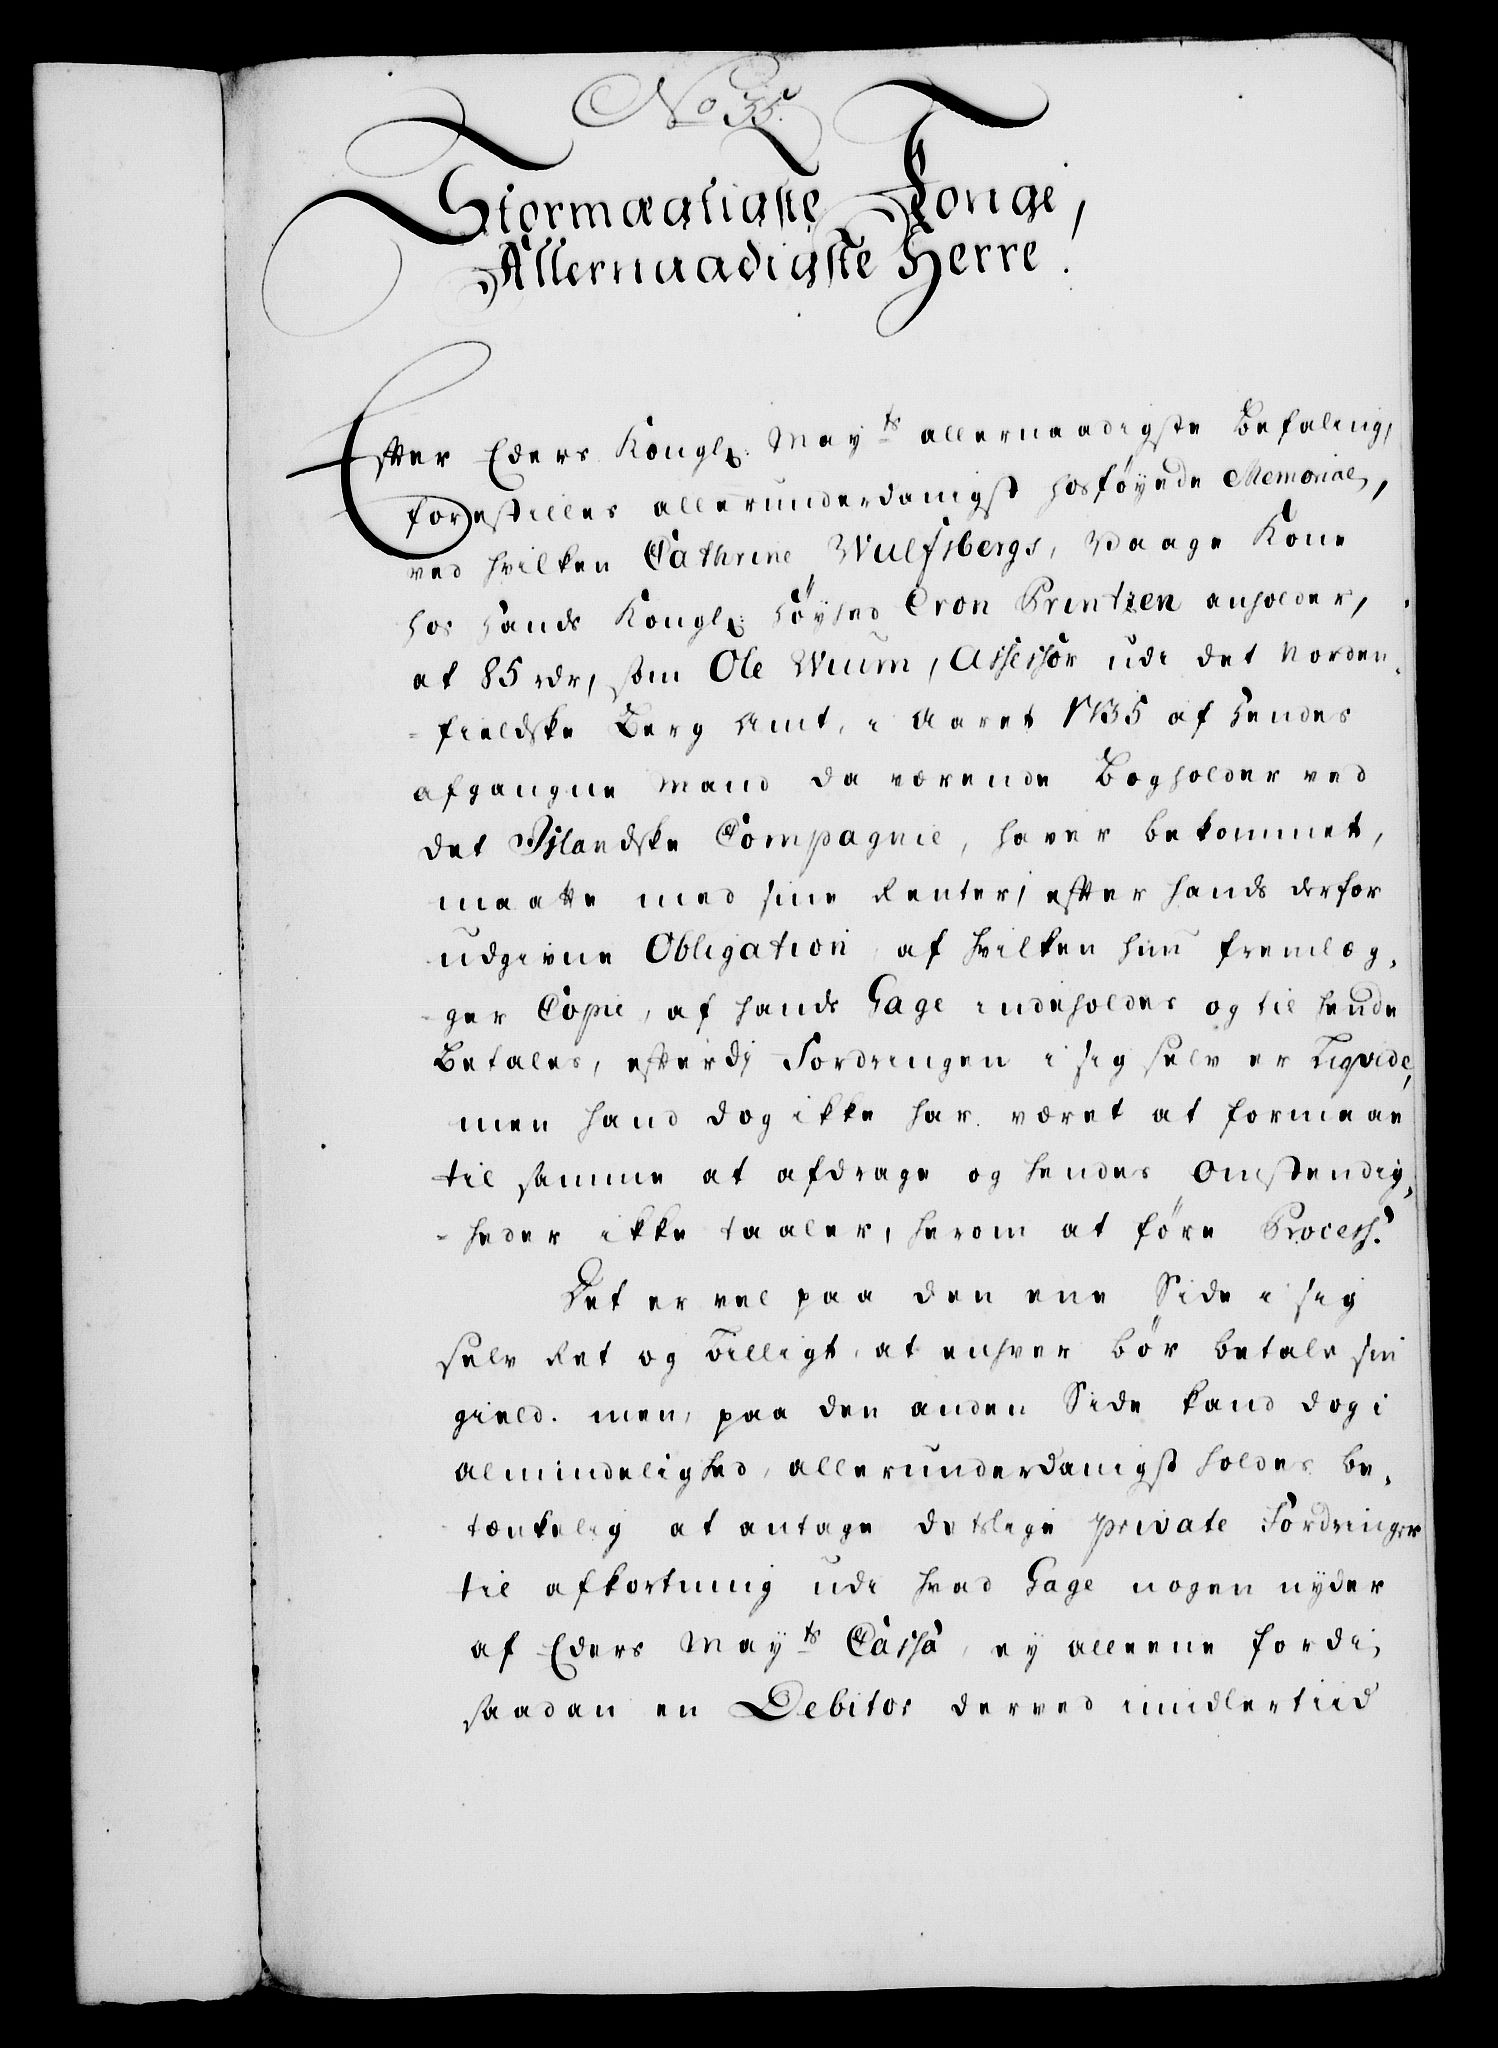 No 35.
Stormægtigste Konge,
Allernaadigste Herre.
Efter Eders Kongl. Mayts allernaadigste Befaling,
forestilles allerunderdanigst hosföyede Memorial,
ved hvilken Cathrine Wulfsbergs, Vaage Kone
hos Hands Kongl. Höyhed Cron Printzen anholder,
at 85 rdr, som Ole Wium, Assessor udi det Norden-
-fieldske Berg Amt, i Aaret 1735 af hendes
afgangne Mand da værende Bogholder ved
det Islandske Compagnie, haver bekommet,
maatte med sine Renter, efter hands derfor
udgivne Obligation, af hvilken hun fremlæg-
-ger Copie, af hands Gage indeholdes og til hende
Betales, efterdj Fordringen i sig selv er Liqvide,
men hand dog ikke har været at formaae
til samme at afdrage og hendes Omstendig-
-heder ikke taaler, herom at före Process.
Det er vel paa den ene Side i sig
selv Ret og billigt, at enhver bör betale sin
gield. men, paa den anden Side kand dog i
almindelighed, allerunderdanigst holdes be-
tænkelig at antage detslige private Fordringer
til afkortning udi hvad Gage nogen nyder
af Eders Mayts Cassa, ey alleene fordi,
saadan en Debitor derved imidlertiid